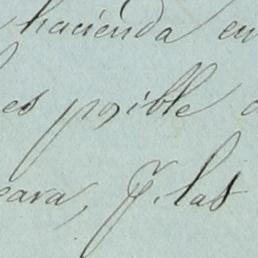 hacienda en
es posible
para, y las